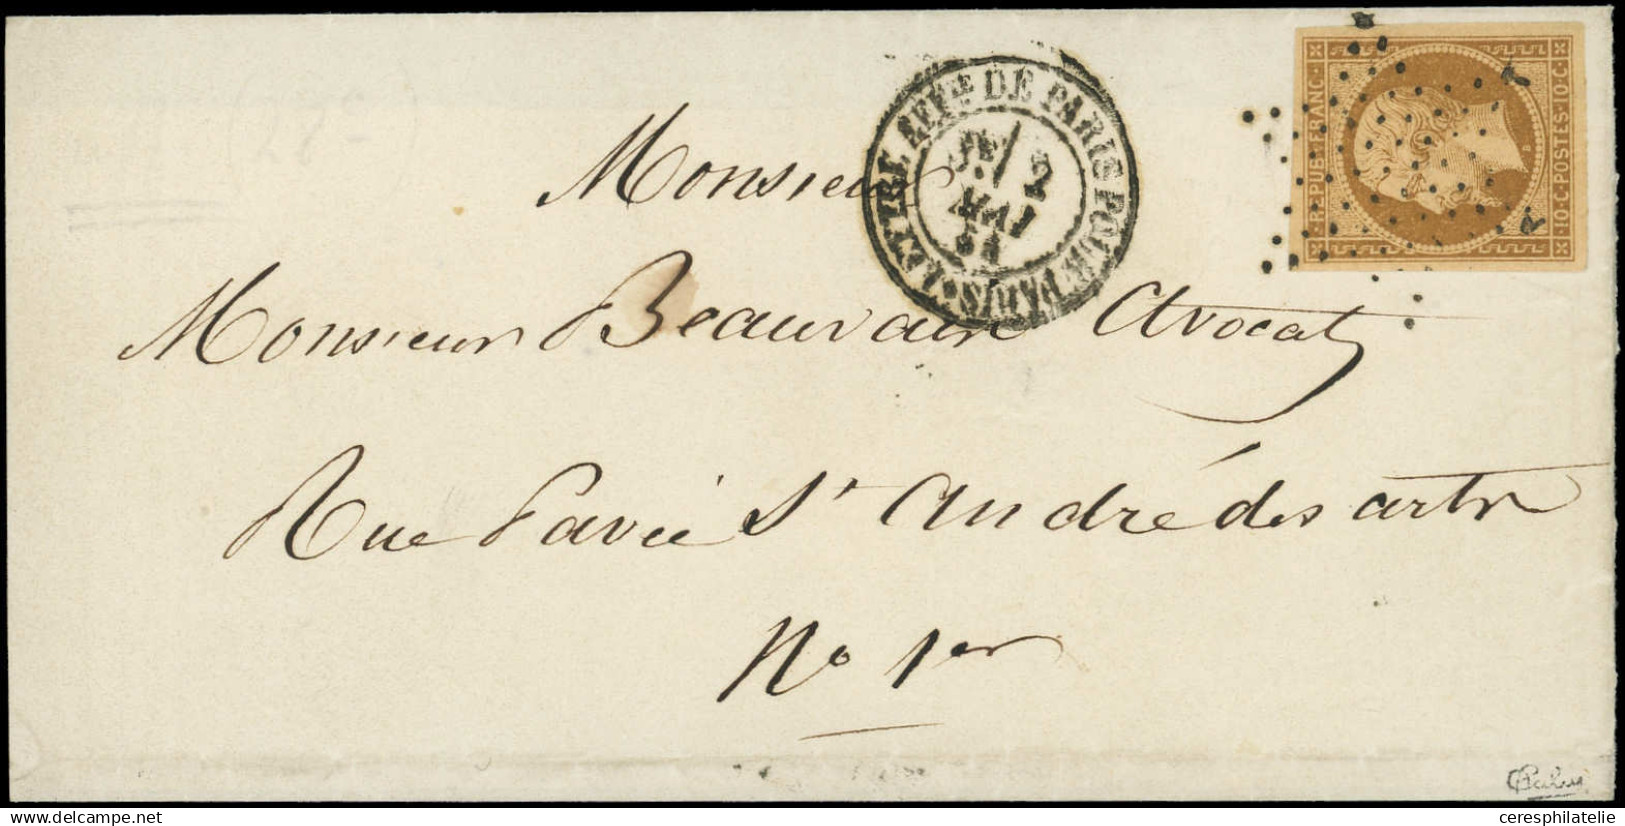 REPUB. FRANC.
10·C·POSTES·10·C
LETTRE AFF.ie DE PARIS POUR PARIS
2
MAI
54
Monsieur
Monsieur Beauvain Avocat
Rue Pavée St André des arts
No 1er
ceresphilatelie